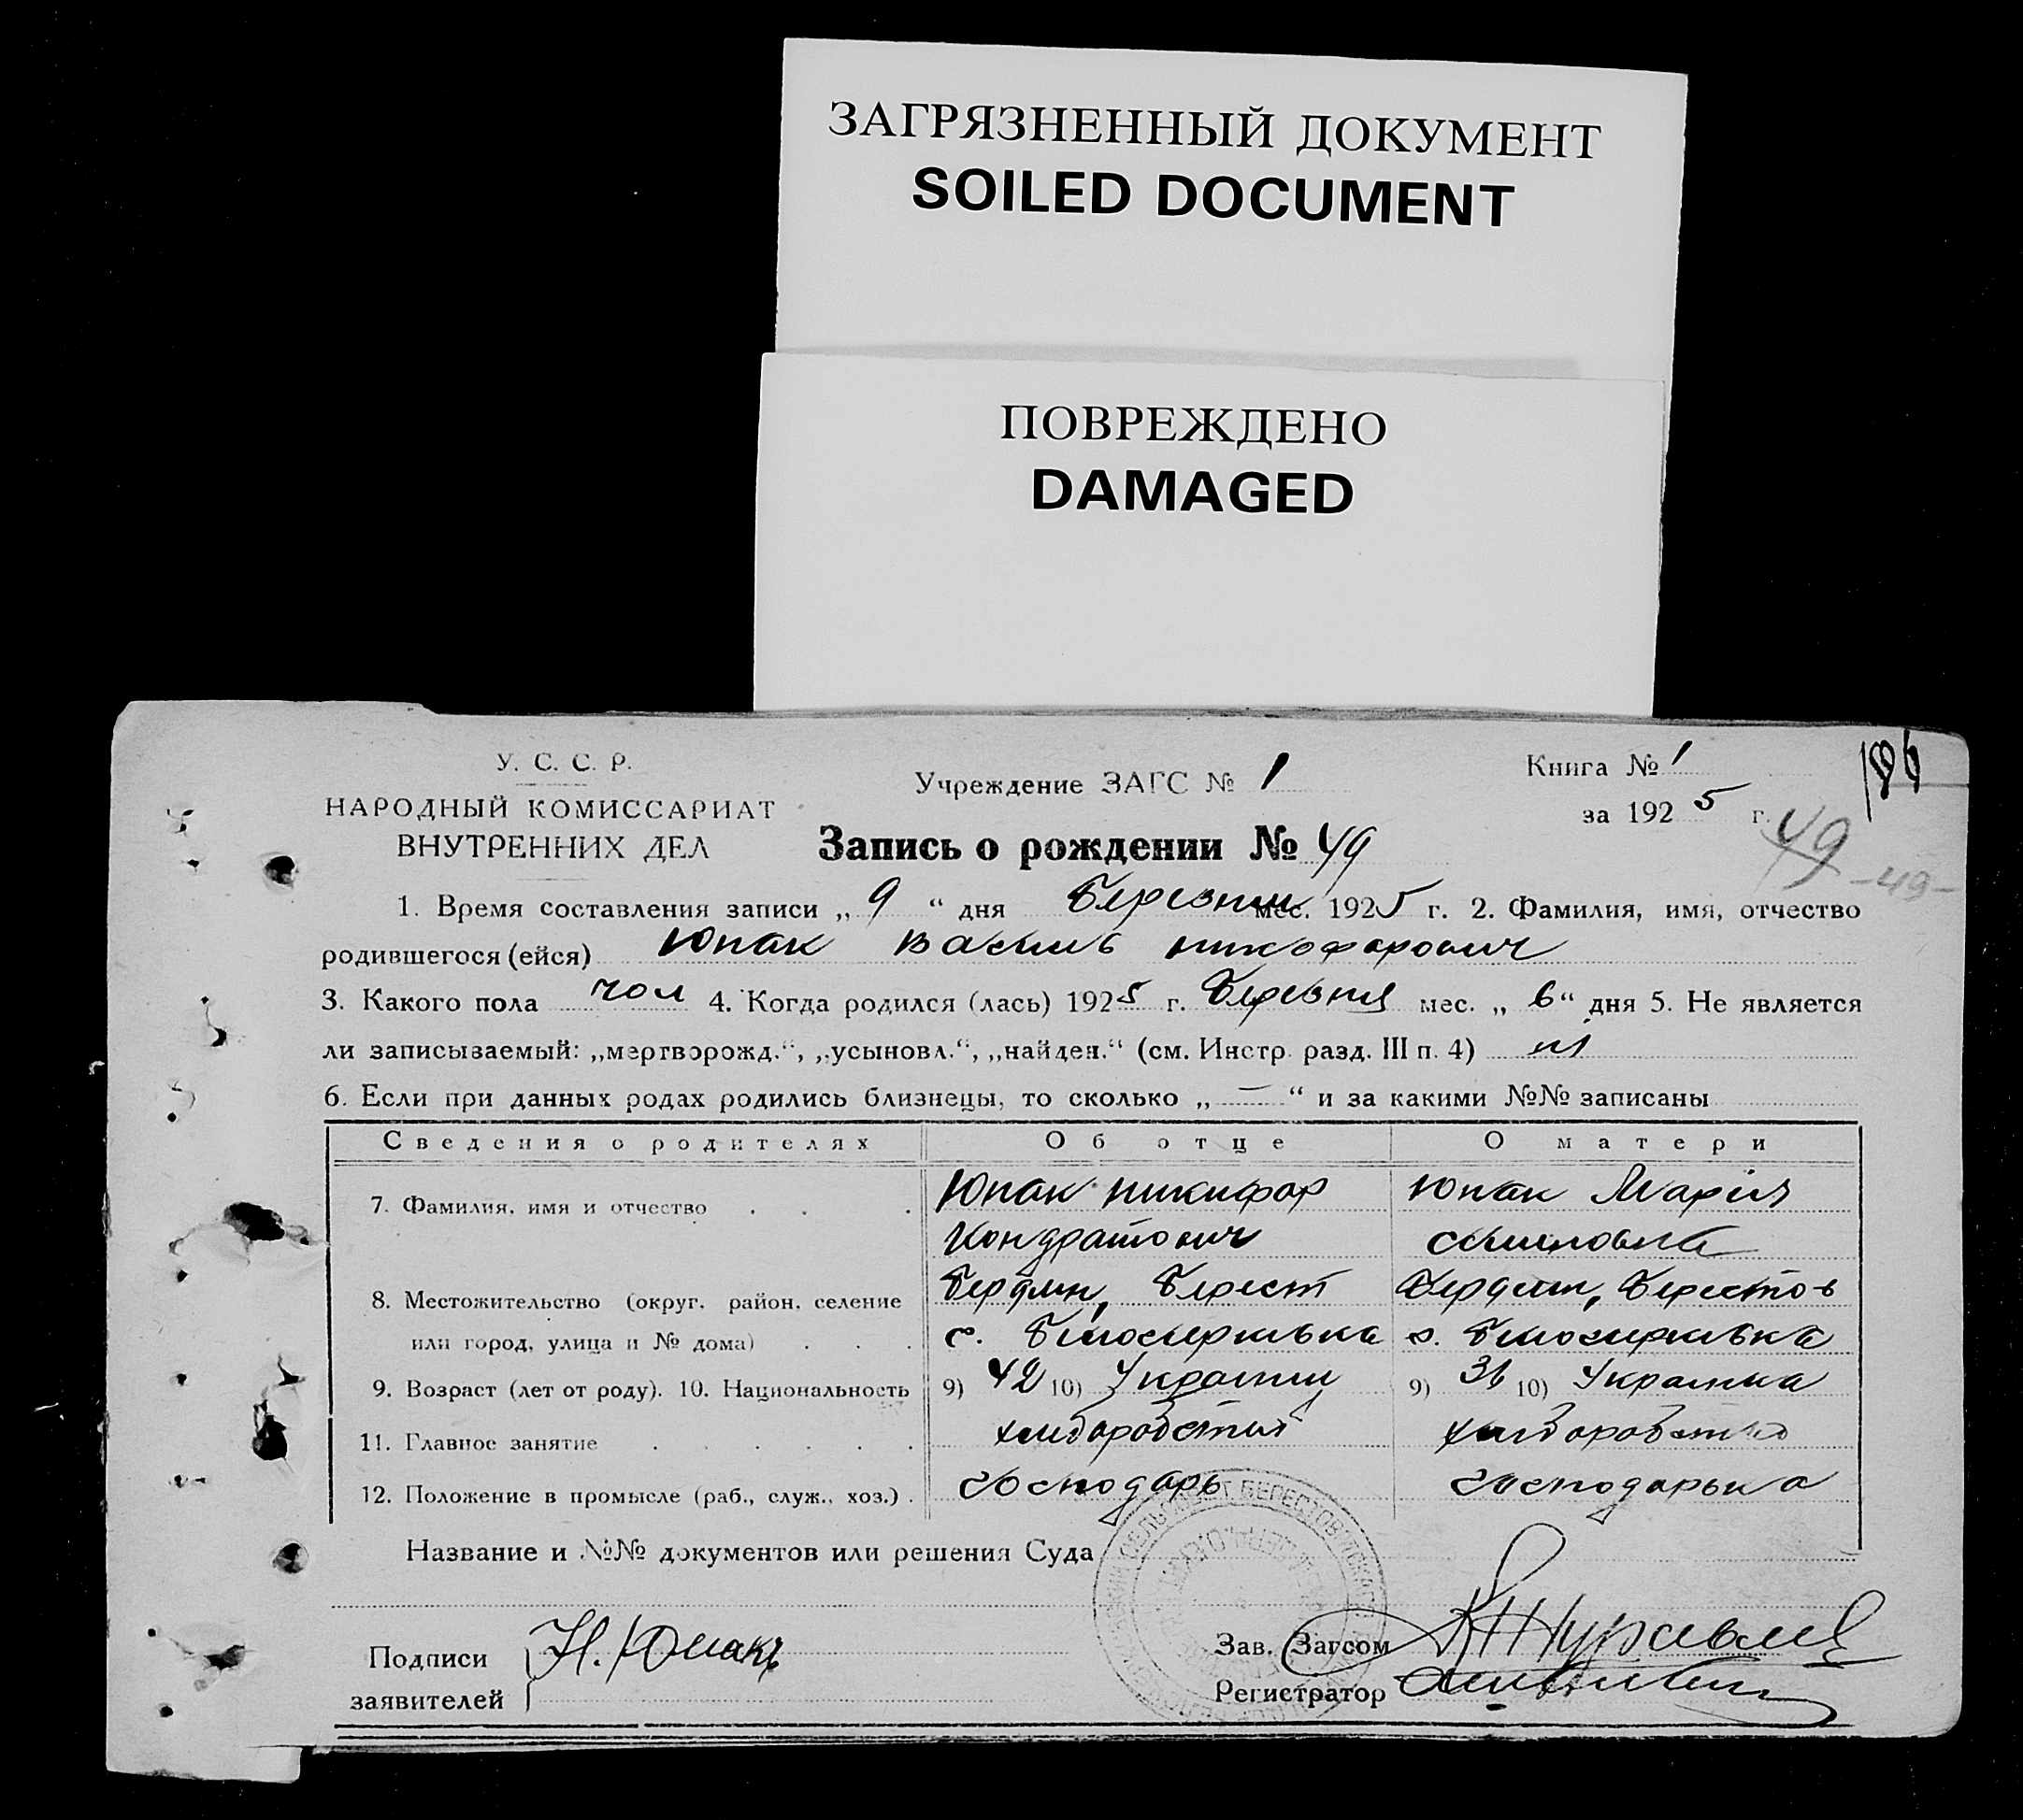 ЗАГРЯЗНЕННЫЙ ДОКУМЕНТ
SOILED DOCUMENT
ПОВРЕЖДЕНО
DAMAGED
У. С. С. Р.
НАРОДНЫЙ КОМИССАРИАТ
ВНУТРЕННИХ ДЕЛ
Учреждение ЗАГС № 1
Книга № 1
за 1925 г.
186
49
-49-
Запись о рождении № 49
1. Время составления записи „ 9 “ дня Березня мес. 1925 г. 2. Фамилия, имя, отчество
родившегося (ейся) Юпак Василь Никофорович
3. Какого пола чол 4. Когда родился (лась) 1925 г. Березня мес. „ 6 “ дня 5. Не является
ли записываемый: „мертворожд.“, „усыновл.“, „найден.“ (см. Инстр. разд. III п. 4) ні
6. Если при данных родах родились близнецы, то сколько „ — “ и за какими №№ записаны
Сведения о родителях Об отце О матери
7. Фамилия, имя и отчество Юпак Никифор Юпак Марія
Кондратович Семеновна
8. Местожительство (округ, район, селение Бердян, Берест Бердян, Берестов
или город, улица и № дома) с. Білоцерківка с. Білоцерківка
9. Возраст (лет от роду). 10. Национальность 9) 42 10) Українец 9) 36 10) Українка
11. Главное занятие хліборобство хліборобство
12. Положение в промысле (раб., служ., хоз.) господарь господарька
Название и №№ документов или решения Суда
Подписи
заявителей
Н. Юпак
Зав. Загсом Журавлев
Регистратор